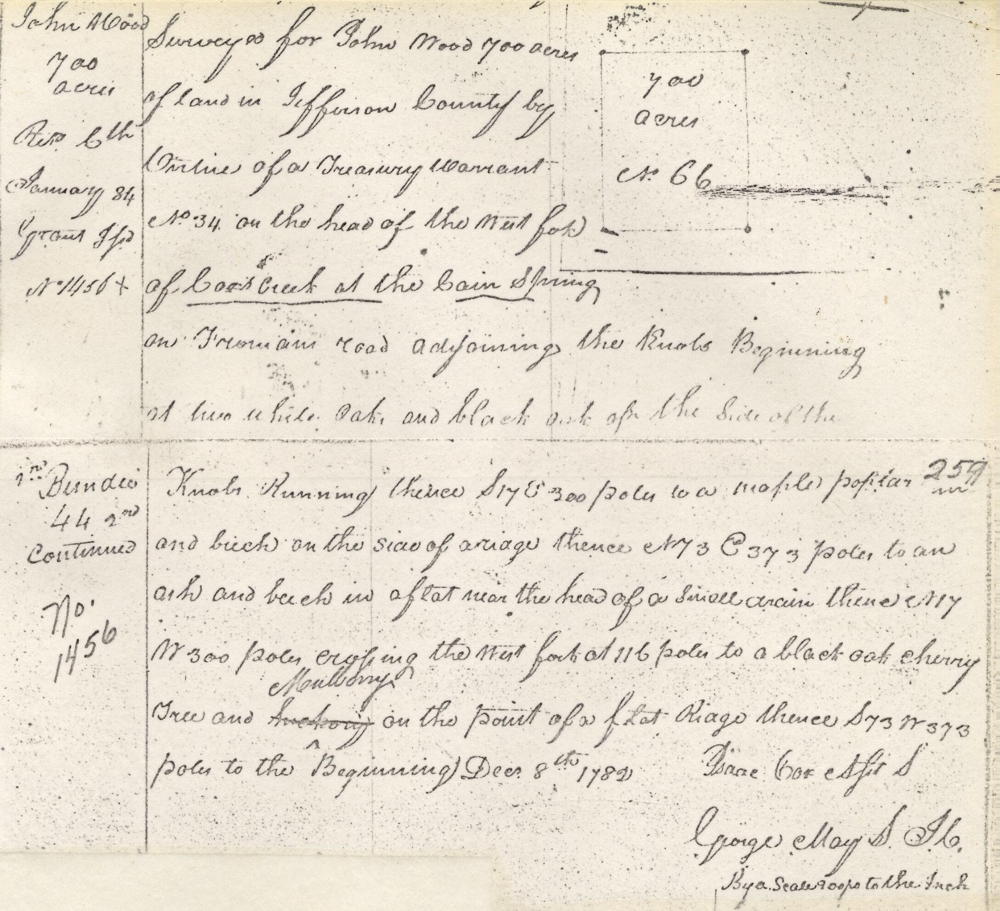 John Wood
700
acres
Rec 6th
January 84
Grant Issd
No 1456 +
Surveyed for John Wood 700 acres
of land in Jefferson County by
Virtue of a Treasury Warrant
No 34 on the head of the West fork
of Coxs Creek at the Cain Spring
on Fromans road adjoining the Knobs Beginning
at two white Oaks and black oak on the Side of the
700
acres
No 66
2nd Bundle
44 2nd
Continued
No.
1456
259
Knobs Running thence S17E 300 poles to a maple poplar
and beech on the side of a ridge thence N73 E 373 poles to an
ash and beech in a flat near the head of a Small drain thence N17
W 300 poles crossing the West fork at 116 poles to a black oak cherry
Mulberry
Tree and hickory on the point of a flat Ridge thence S73 W 373
poles to the Beginning Decr 8th 1782
Isaac Cox Asst S
George May S. J C.
By a Scale 200 po to the Inch